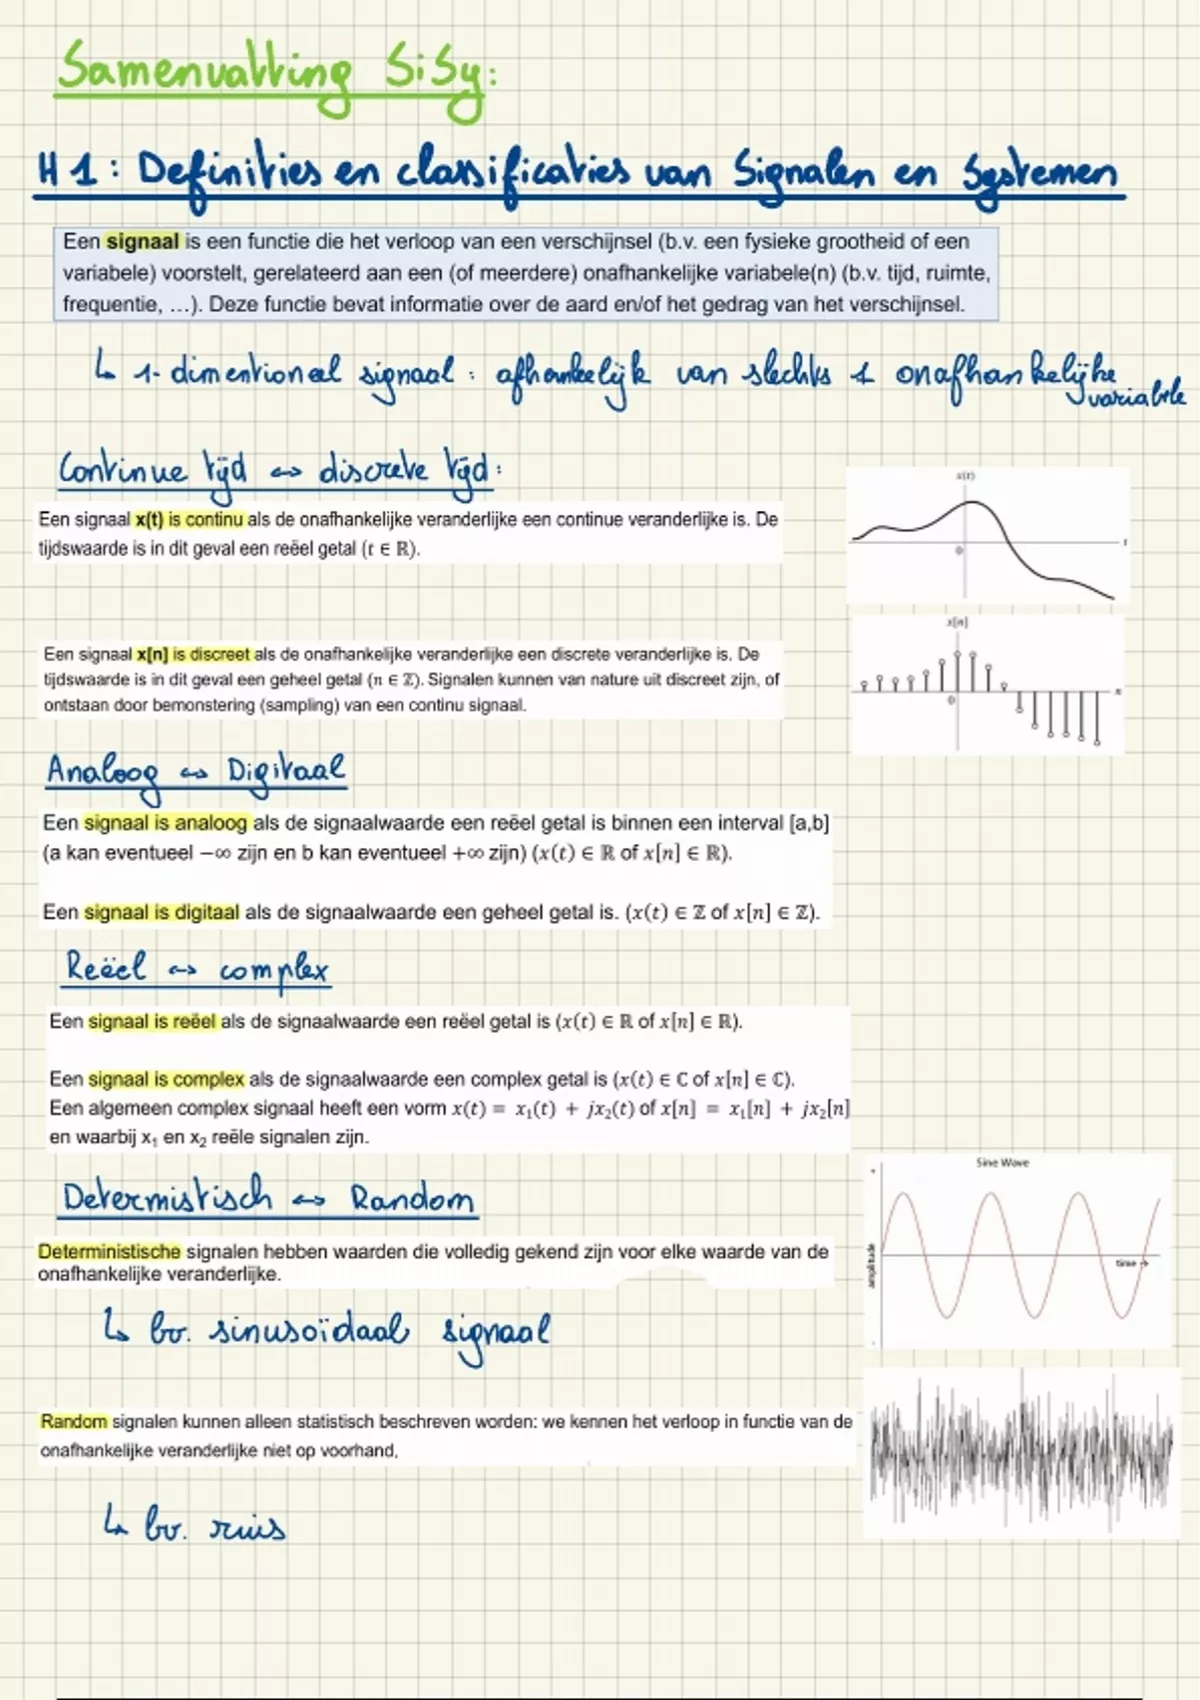 Samenvatting SiSy:
H1: Definities en classificaties van Signalen en Systemen
Een signaal is een functie die het verloop van een verschijnsel (b.v. een fysieke grootheid of een
variabele) voorstelt, gerelateerd aan een (of meerdere) onafhankelijke variabele(n) (b.v. tijd, ruimte,
frequentie, …). Deze functie bevat informatie over de aard en/of het gedrag van het verschijnsel.
↳ 1-dimentioneel signaal: afhankelijk van slechts 1 onafhankelijke
variabele
Continue tijd ↔ discrete tijd:
Een signaal x(t) is continu als de onafhankelijke veranderlijke een continue veranderlijke is. De
tijdswaarde is in dit geval een reëel getal (t ∈ ℝ).
x(t)
0
t
Een signaal x[n] is discreet als de onafhankelijke veranderlijke een discrete veranderlijke is. De
tijdswaarde is in dit geval een geheel getal (n ∈ ℤ). Signalen kunnen van nature uit discreet zijn, of
ontstaan door bemonstering (sampling) van een continu signaal.
x[n]
0
n
Analoog ↔ Digitaal
Een signaal is analoog als de signaalwaarde een reëel getal is binnen een interval [a,b]
(a kan eventueel −∞ zijn en b kan eventueel +∞ zijn) (x(t) ∈ ℝ of x[n] ∈ ℝ).
Een signaal is digitaal als de signaalwaarde een geheel getal is. (x(t) ∈ ℤ of x[n] ∈ ℤ).
Reëel ↔ complex
Een signaal is reëel als de signaalwaarde een reëel getal is (x(t) ∈ ℝ of x[n] ∈ ℝ).
Een signaal is complex als de signaalwaarde een complex getal is (x(t) ∈ ℂ of x[n] ∈ ℂ).
Een algemeen complex signaal heeft een vorm x(t) = x₁(t) + jx₂(t) of x[n] = x₁[n] + jx₂[n]
en waarbij x₁ en x₂ reële signalen zijn.
Determistisch ↔ Random
Deterministische signalen hebben waarden die volledig gekend zijn voor elke waarde van de
onafhankelijke veranderlijke.
Sine Wave
amplitude
time →
↳ bv. sinusoïdaal signaal
Random signalen kunnen alleen statistisch beschreven worden: we kennen het verloop in functie van de
onafhankelijke veranderlijke niet op voorhand,
↳ bv. ruis